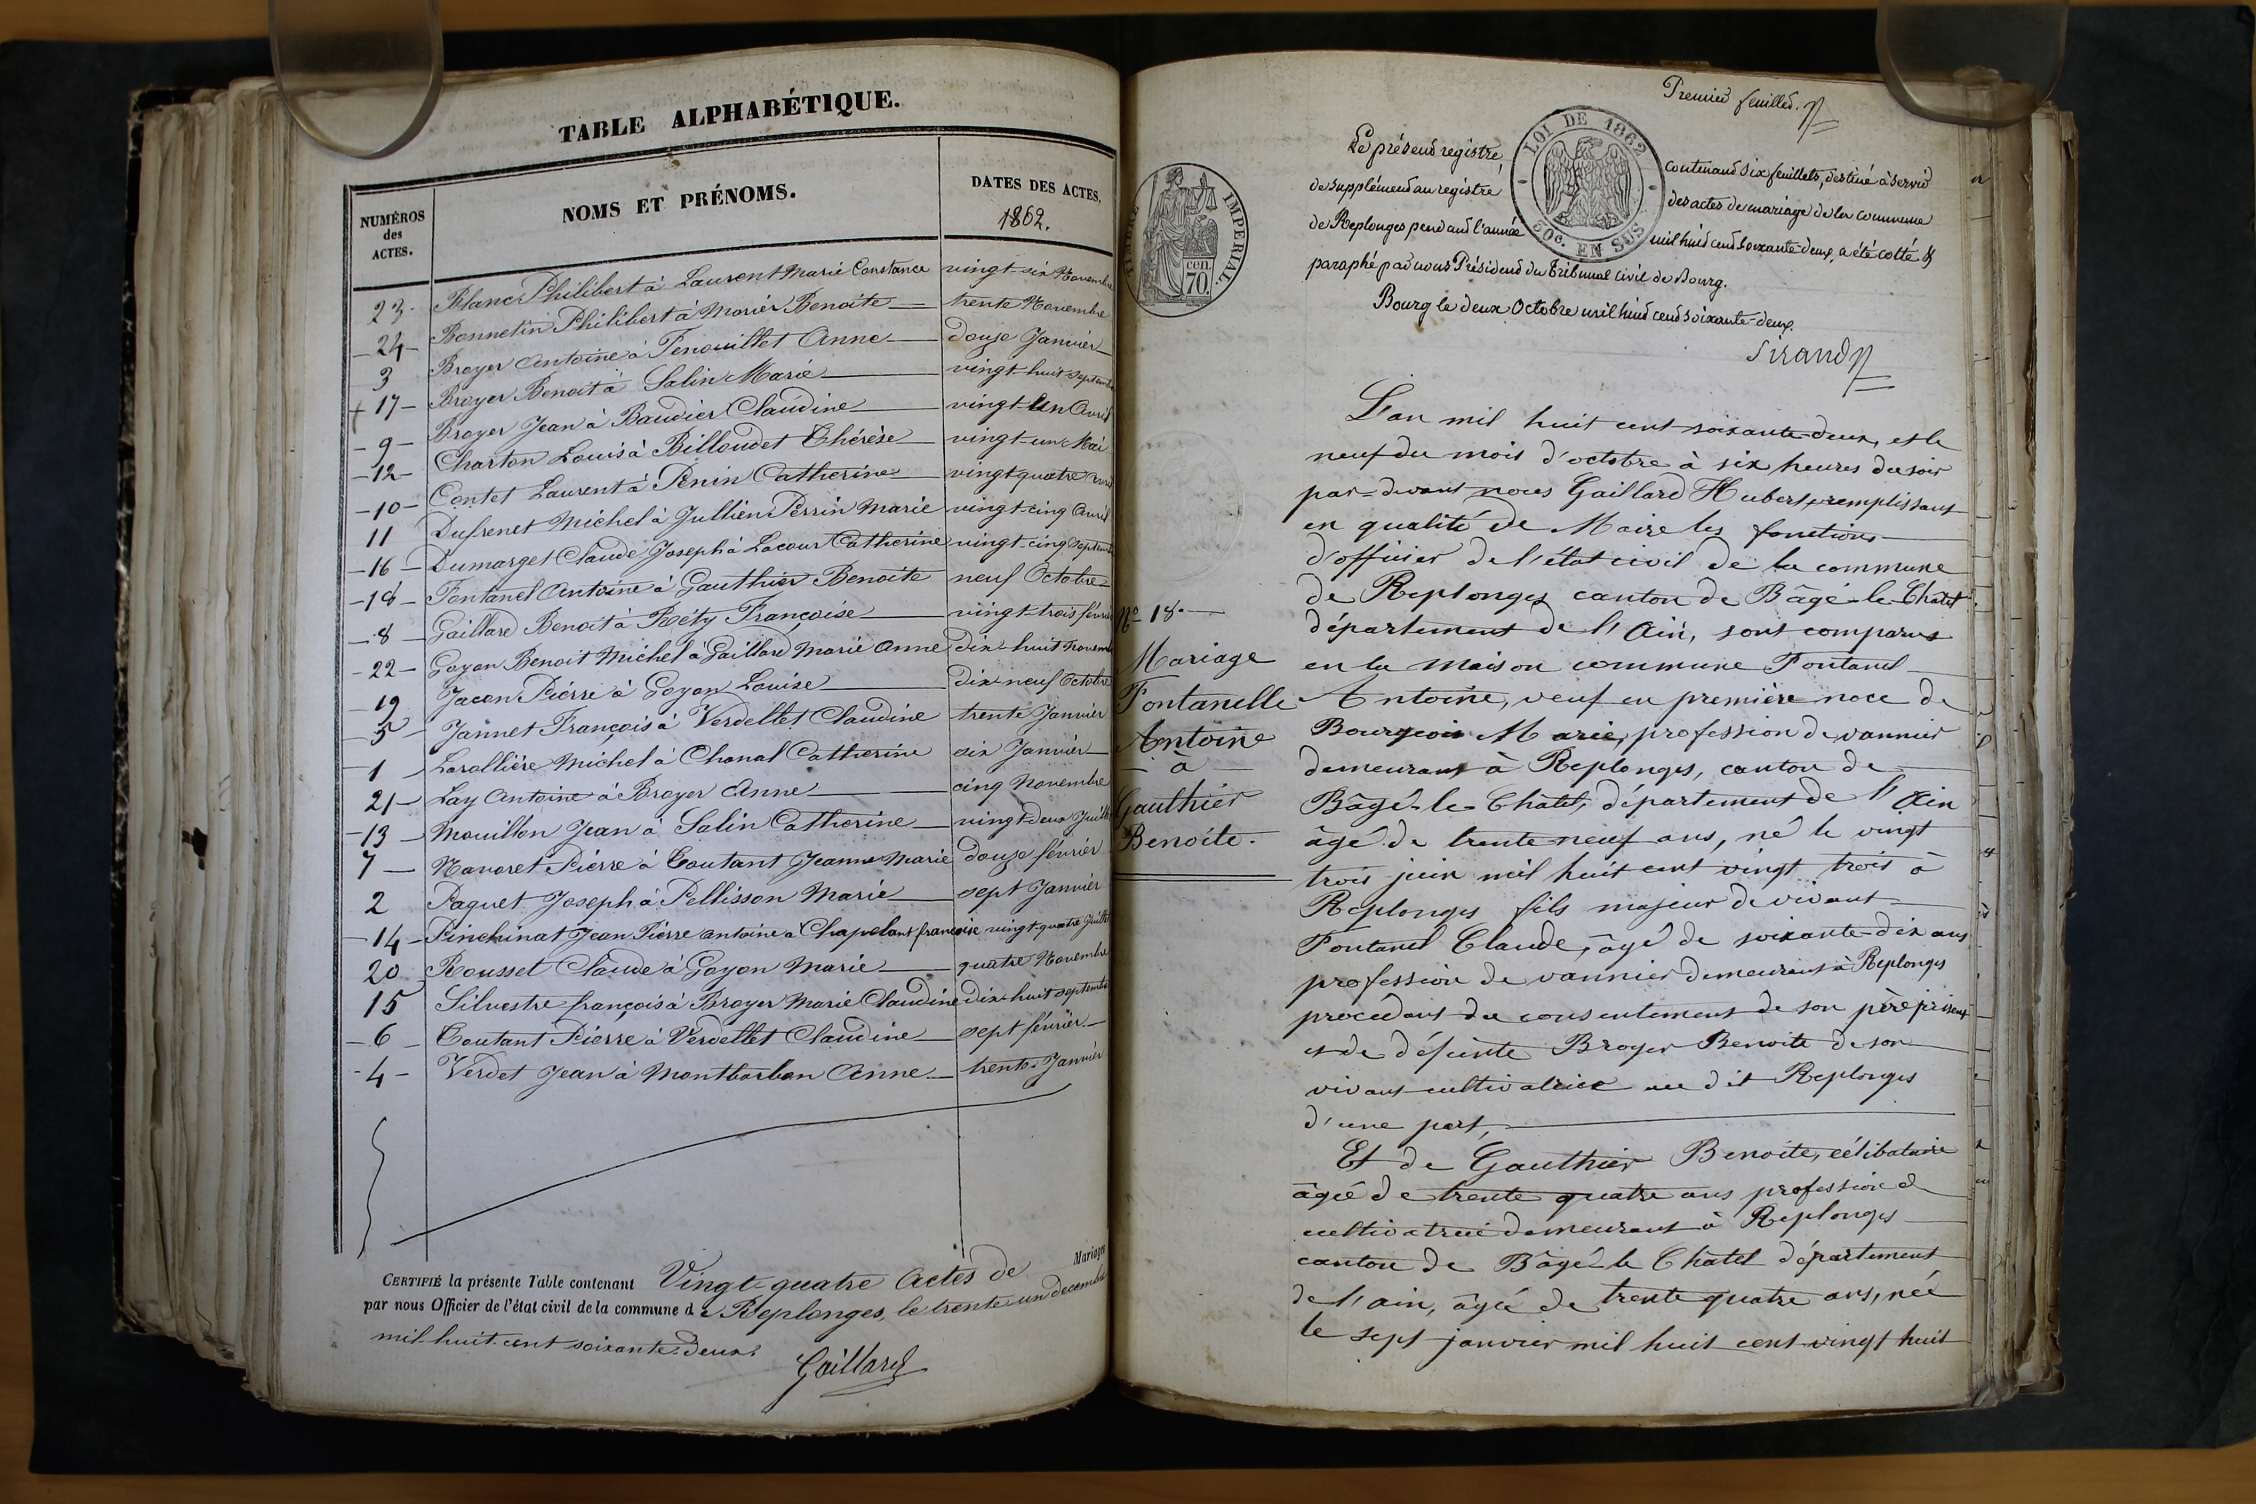 TABLE ALPHABÉTIQUE.
NUMÉROS des ACTES.
NOMS ET PRÉNOMS.
DATES DES ACTES.
1862.
23. Blanc Philibert à Laurent Marie Constance vingt-six Novembre
24 Bonnetin Philibert à Morier Benoite trente Novembre
3 Broyer Antoine à Fenouillet Anne douze Janvier
17 Broyer Benoit à Salin Marie vingt-huit septembre
9 Broyer Jean à Baudier Claudine vingt-un Avril
12 Charton Louis à Billoudet Thérèse vingt-un Mai
10 Contet Laurent à Penin Catherine vingt quatre avril
11 Dufrenet Michel à Jullien Perrin Marie vingt-cinq Avril
16 Dumarget Claude Joseph à Lacour Catherine vingt-cinq septembre
18 Fontanel Antoine à Gauthier Benoite neuf Octobre
8 Gaillard Benoit à Réty Françoise vingt-trois février
22 Goyon Benoit Michel à Gaillard Marie Anne dix-huit Novembre
19 Jacon Pierre à Goyon Louise dix neuf Octobre
5 Jannet François à Verdellet Claudine trente Janvier
1 Larollière Michel à Chanal Catherine six Janvier
21 Lay Antoine à Broyer Anne cinq Novembre
13 Mouillon Jean à Salin Catherine vingt-deux Juillet
7 Navoret Pierre à Toutant Jeanne Marie douze février
2 Paquet Joseph à Pellisson Marie sept Janvier
14 Pinchinat Jean Pierre antoine à Chapelant françoise vingt-quatre Juillet
20 Rousset Claude à Goyon Marie quatre Novembre
15 Silvestre françois à Broyer Marie Claudine dix-huit septembre
6 Toutant Pierre à Verdellet Claudine sept février
4 Verdet Jean à Montbarbon Anne trente Janvier
CERTIFIÉ la présente Table contenant Vingt-quatre Actes de Mariages
par nous Officier de l'état civil de la commune de Replonges, le trente un decembre
mil huit cent soixante-deux.
Gaillard
Premier feuillet.
TIMBRE IMPERIAL.
70. cen.
LOI DE 1862
20c. EN SUS
Le présent registre, contenant six feuillets, destiné à servir
de supplément au registre des actes de mariage de la commune
de Replonges pendant l'année mil huit cent soixante-deux, a été cotté &
paraphé par nous Président du Tribunal Civil de Bourg.
Bourg le deux Octobre mil huit cent soixante-deux.
Sirand
N° 18.
Mariage
Fontanelle
Antoine
à
Gauthier
Benoite.
L'an mil huit cent soixante-deux, et le
neuf du mois d'octobre à six heures du soir
par-devant nous Gaillard Hubert, remplissant
en qualité de Maire les fonctions
d'officier de l'état civil de la commune
de Replonges canton de Bâgé-le-Châtel
département de l'Ain, sont comparus
en la maison commune Fontanel
Antoine, veuf en première noce de
Bourgeois Marie, profession de vannier
demeurant à Replonges, canton de
Bâgé-le-Châtel, département de l'Ain
âgé de trente neuf ans, né le vingt
trois juin mil huit cent vingt trois à
Replonges fils majeur de vivant
Fontanel Claude, âgé de soixante-dix ans
profession de vannier demeurant à Replonges
procédant du consentement de son père présent
et de défunte Broyer Benoite de son
vivant cultivatrice au dit Replonges
d'une part,
Et de Gauthier Benoite, célibataire
âgée de trente quatre ans profession de
cultivatrice demeurant à Replonges
canton de Bâgé-le-Chatel département
de l'ain, âgée de trente quatre ans, née
le sept janvier mil huit cent vingt huit